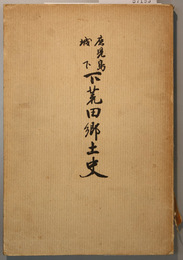 鹿児島
城下
下荒田郷土史